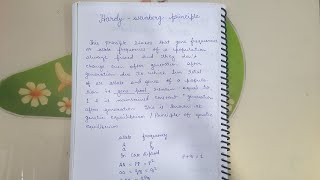 Hardy - wainberg principle
This principle states that gene frequencies
or allele frequencies of a population
always fixed and they don't
change even after generation after
generation due to which sum total
of all allele and genes of a popula
tion is gene pool remain equal to
1 & is maintained constant generation
after generation. This is known as
genetic equilibrium / Principle of genetic
equilibrium
allele frequency
A p
a q
In case diploid
AA = PP = P²
aa = qq = q²
p+q = 1